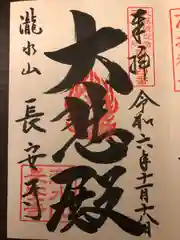 奉拝
令和六年十一月十六日
大悲殿
瀧水山
長安寺